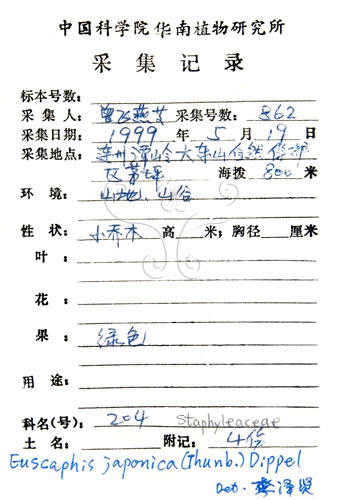 中国科学院华南植物研究所
采集记录
标本号数：
采集人：曾飞燕等 采集号数：862
采集日期：1999年5月19日
采集地点：连州潭岭大东山自然保护
区 海拨 800 米
环境：山地、山谷
性状：小乔木 高 米；胸径 厘米
叶：
花：
果：绿色
用途：
科名(号)：204 Staphyleaceae
土名： 附记：4份
Euscaphis japonica (Thunb.) Dippel
Det. 泽贤